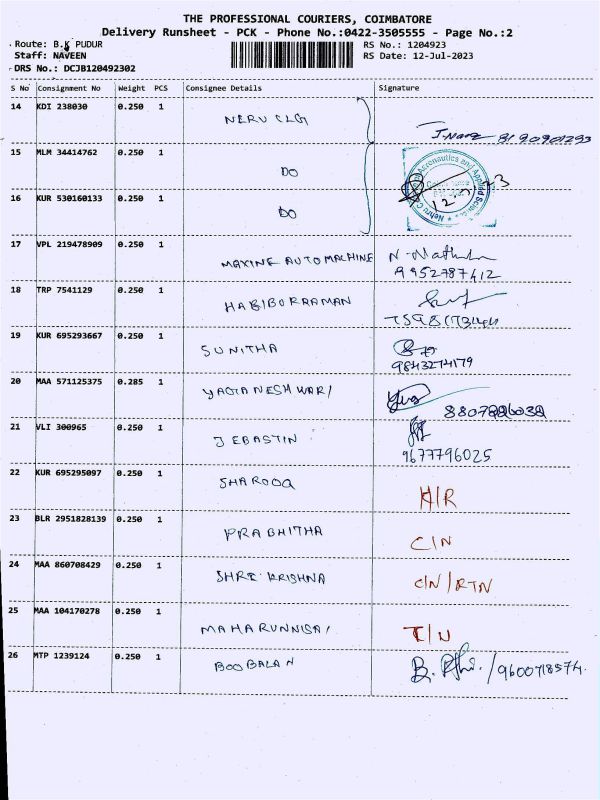 THE PROFESSIONAL COURIERS, COIMBATORE
Delivery Runsheet - PCK - Phone No.:0422-3505555 - Page No.:2
Route: B.K PUDUR RS No.: 1204923
Staff: NAVEEN RS Date: 12-Jul-2023
DRS No.: DCJB120492302
S No Consignment No Weight PCS Consignee Details Signature
14 KDI 238030 0.250 1 NERU CLG
15 MLM 34414762 0.250 1 DO
16 KUR 530160133 0.250 1 DO
17 VPL 219478909 0.250 1 MAXINE AUTO MACHINE
9952787412
18 TRP 7541129 0.250 1 HABIBORRAMAN
19 KUR 695293667 0.250 1 SUNITHA
9843274179
20 MAA 571125375 0.285 1 YAGANESHWARI
21 VLI 300965 0.250 1 JEBASTIN
9677796025
22 KUR 695295097 0.250 1 SHAROOQ H/R
23 BLR 2951828139 0.250 1 PRABHITHA C/N
24 MAA 860708429 0.250 1 SHRE KRISHNA C/N/RTN
25 MAA 104170278 0.250 1 MAHARUNNISA I/N
26 MTP 1239124 0.250 1 BOOBALAN /9600718574.